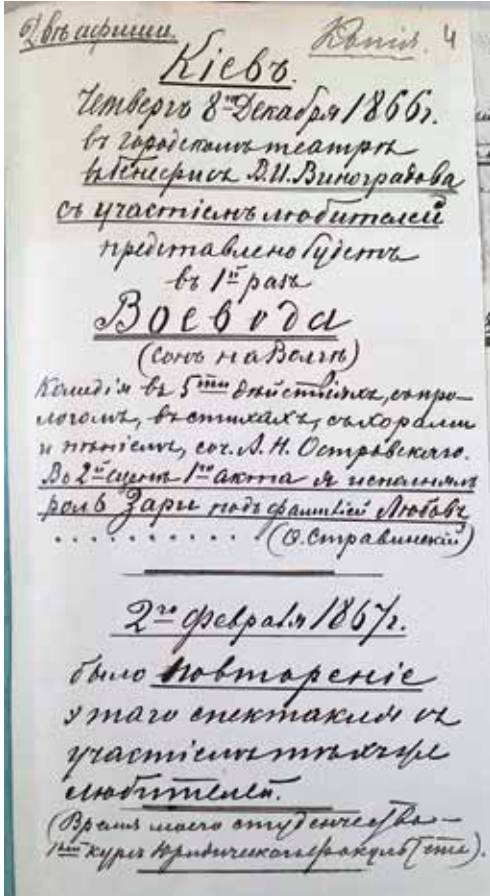 2) въ афиши. Копія. 4
Кіевъ.
Четвергъ 8го Декабря 1866г.
въ городскомъ театрѣ
въ бенефисъ В.И. Виноградова
съ участіемъ любителей
представлено будетъ
въ 1й разъ
Воевода
(Сонъ на Волгѣ)
Комедія въ 5ти дѣйствіяхъ, съ про-
логомъ, въ стихахъ, съ хорами
и пѣніемъ, соч. А. Н. Островскаго.
Во 2й сценѣ 1го акта я исполнялъ
роль Зари подъ фамиліей Любовъ
. . . . . . . . . . (Ѳ. Стравинскій)
2го февраля 1867г.
было повтореніе
этаго спектакля съ
участіемъ тѣхъ же
любителей.
(Время моего студенчества —
курсъ Юридическаго факультета).